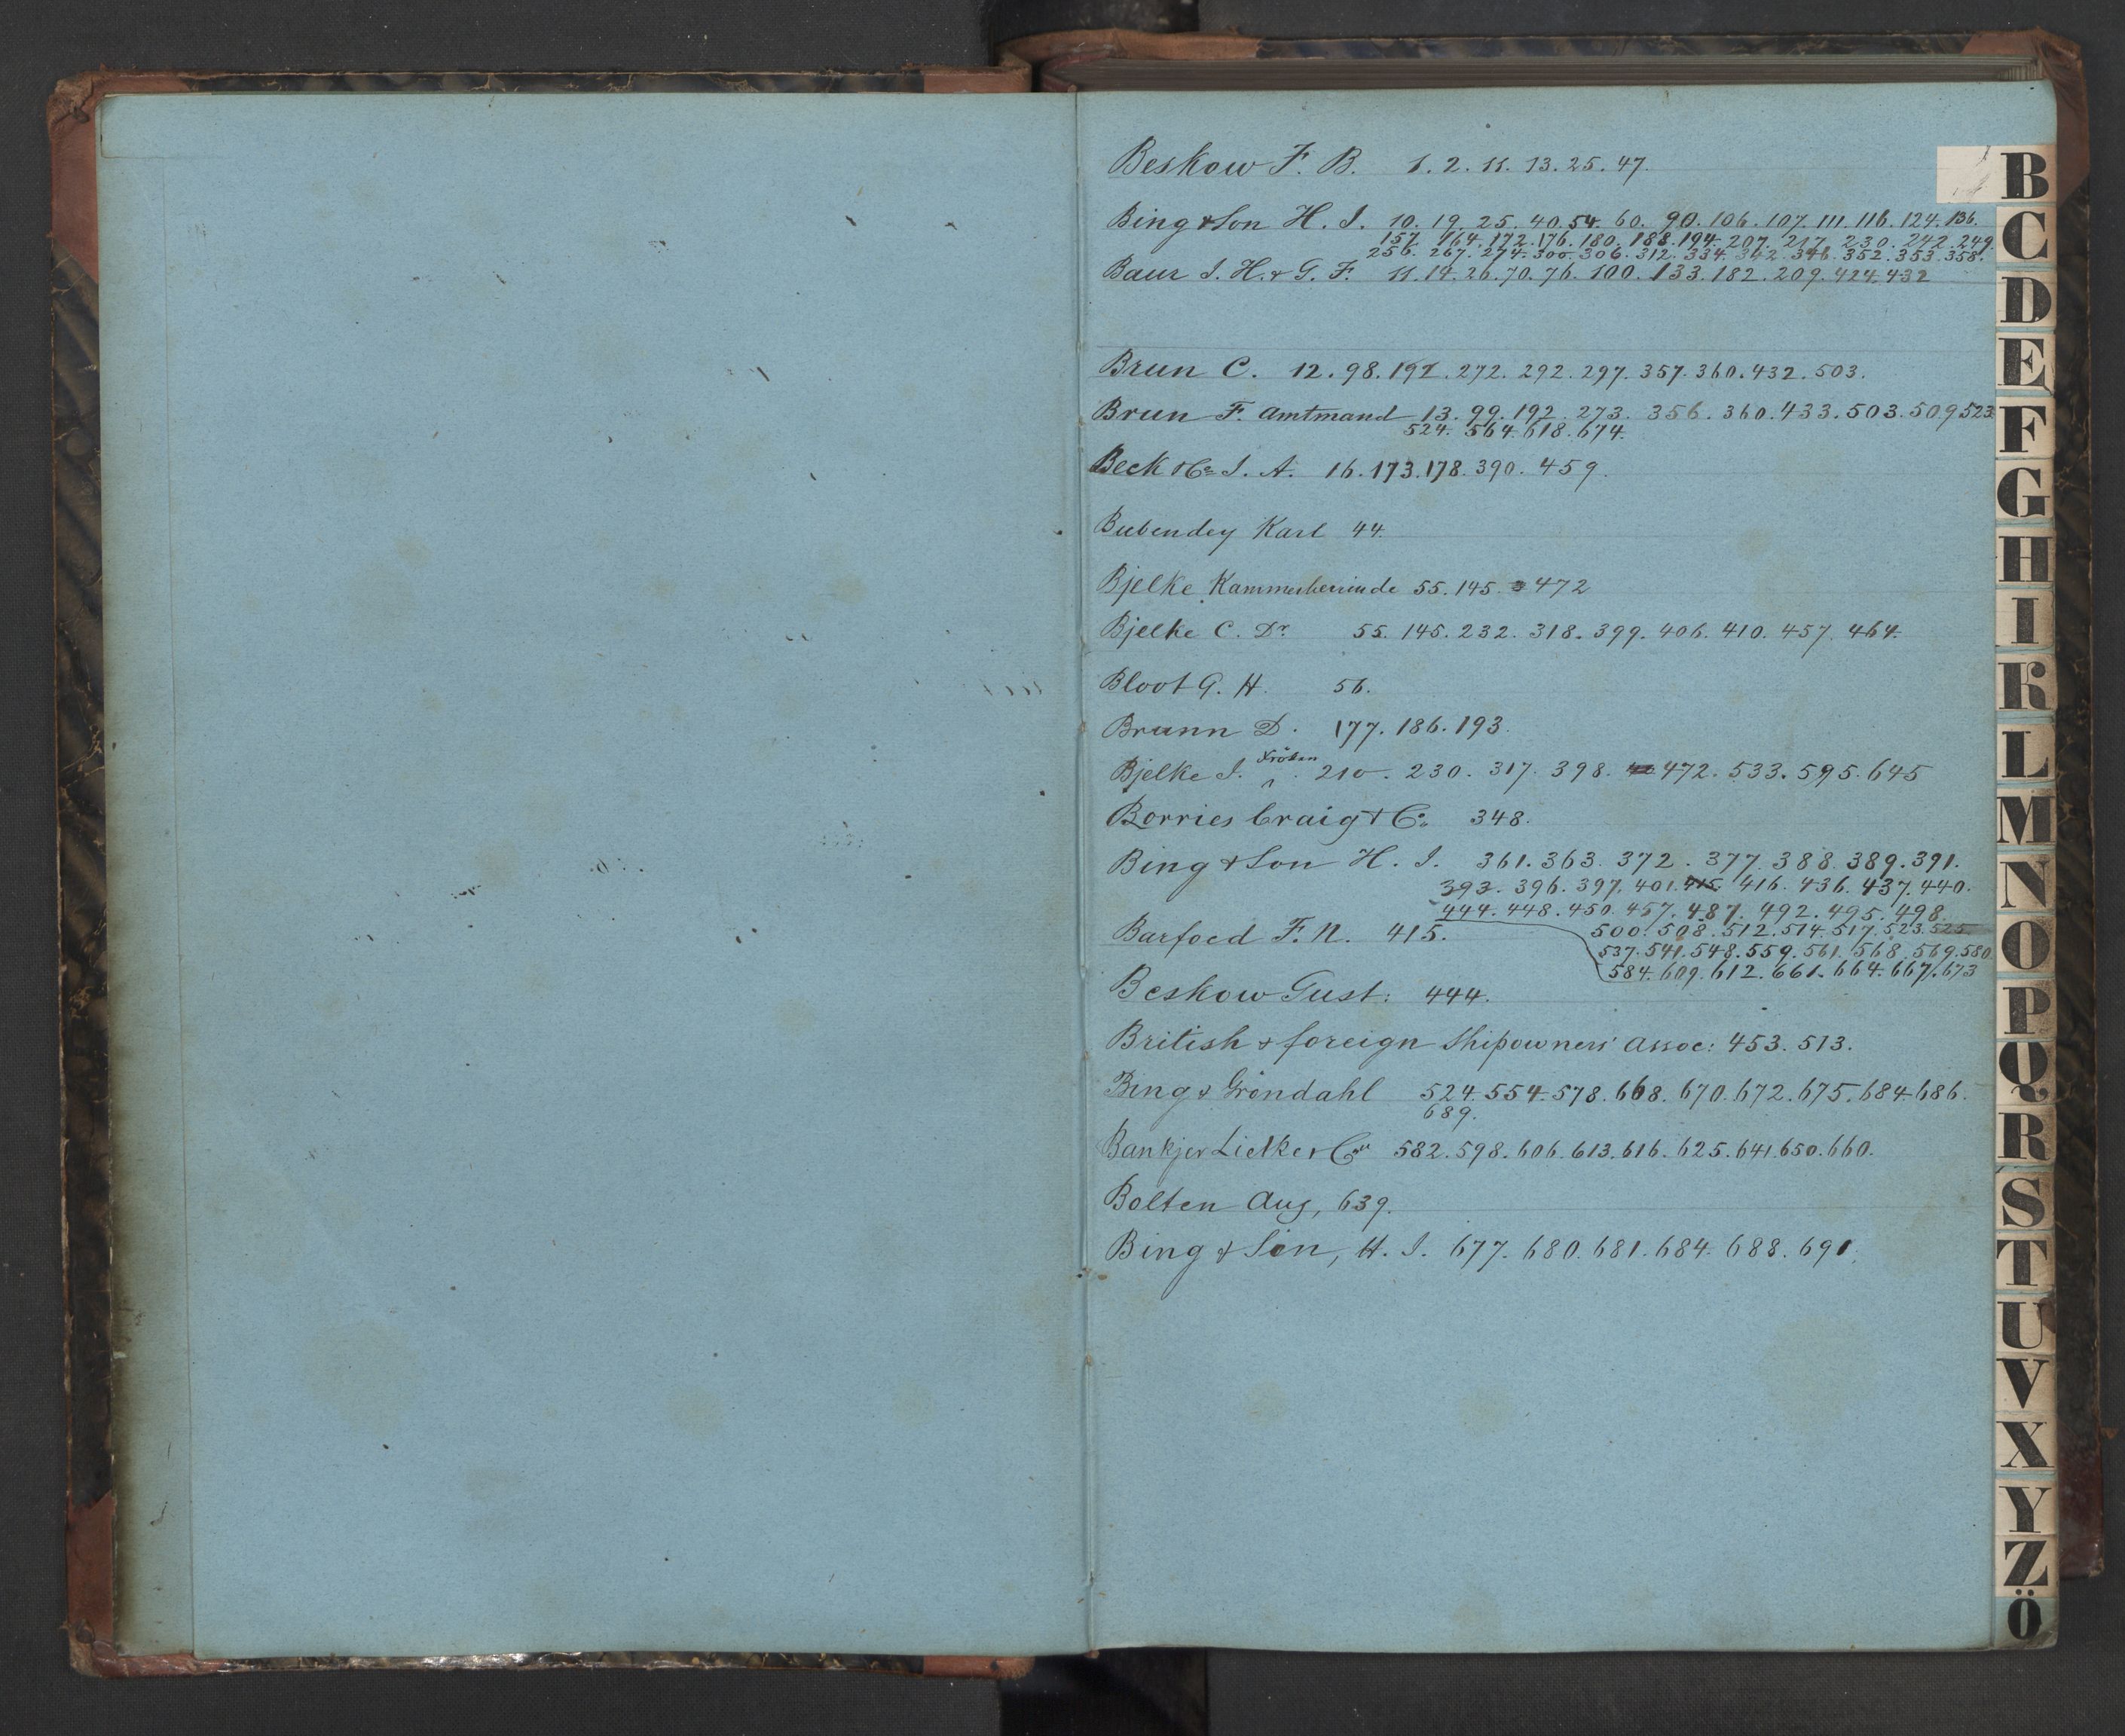 Beskow F. B. 1. 2. 11. 13. 25. 47.
Bing & Son H. I. 10. 19. 25. 40. 54. 60. 90. 106. 107. 111. 116. 124. 136.
157. 164. 172. 176. 180. 188. 194. 207. 217. 230. 242. 249.
256. 267. 274. 300. 306. 312. 334. 342. 346. 352. 353. 358.
Baur I. H. & G. F. 11. 14. 26. 70. 76. 100. 133. 182. 209. 424. 432
Brun C. 12. 98. 192. 272. 292. 297. 357. 360. 432. 503.
Brun F. Amtmand 13. 99. 192. 273. 356. 360. 433. 503. 509 523.
524. 564. 618. 674.
Beck & Co I. A. 16. 173. 178. 390. 459.
Bubendey Karl 44.
Bjelke Kammerherinde 55. 145. 472
Bjelke C. Dr. 55. 145. 232. 318. 399. 406. 410. 457. 464.
Bloot G. H. 56.
Brunn D. 177. 186. 193.
Bjelke I. Fröken 210. 230. 317. 398. 472. 533. 595. 645
Borries Craig & Co. 348.
Bing & Son H. I. 361. 363. 372. 377. 388. 389. 391.
393. 396. 397. 401. 415. 416. 436. 437. 440.
444. 448. 450. 457. 487. 492. 495. 498.
Barfoed F. N. 415. 500. 508. 512. 514. 517. 523. 525.
537. 541. 548. 559. 561. 568. 569. 580
584. 609. 612. 661. 664. 667. 673
Beskow Gust: 444.
British & foreign Shipowners' Assoc: 453. 513.
Bing & Gröndahl 524. 554. 578. 668. 670. 672. 675. 684. 686.
689.
Bankjer Lietke & Co 582. 598. 606. 613. 616. 625. 641. 650. 660.
Bolten Aug, 639.
Bing & Sön, H. I. 677. 680. 681. 684. 688. 691.
B
C
D
E
F
G
H
I
K
L
M
N
O
P
Q
R
S
T
U
V
X
Y
Z
Ö